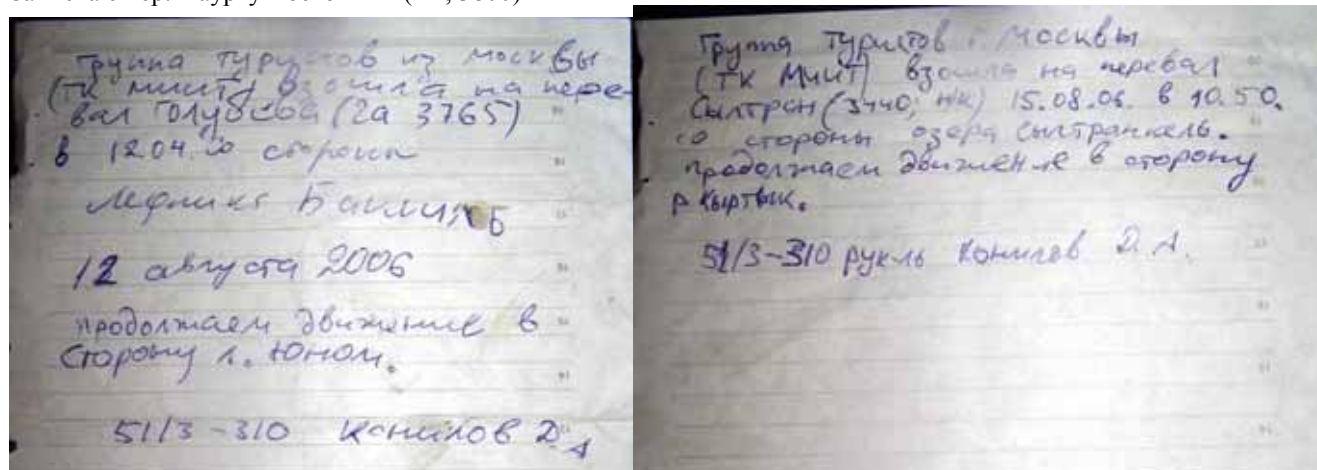 Группа туристов из Москвы
(ТК МИИТ) взошла на пере-
вал Голубева (2а 3765)
в 12.04. со стороны
ледника
12 августа 2006
продолжаем движение в
сторону л. Юном.
51/3-310 Д.А
Группа туристов г. Москвы
(ТК МИИТ) взошла на перевал
Сылтран (3440, н/к) 15.08.06. в 10.50.
со стороны озера Сылтранкель.
продолжаем движение в сторону
р Кыртык.
51/3-310 рук-ль Д.А.